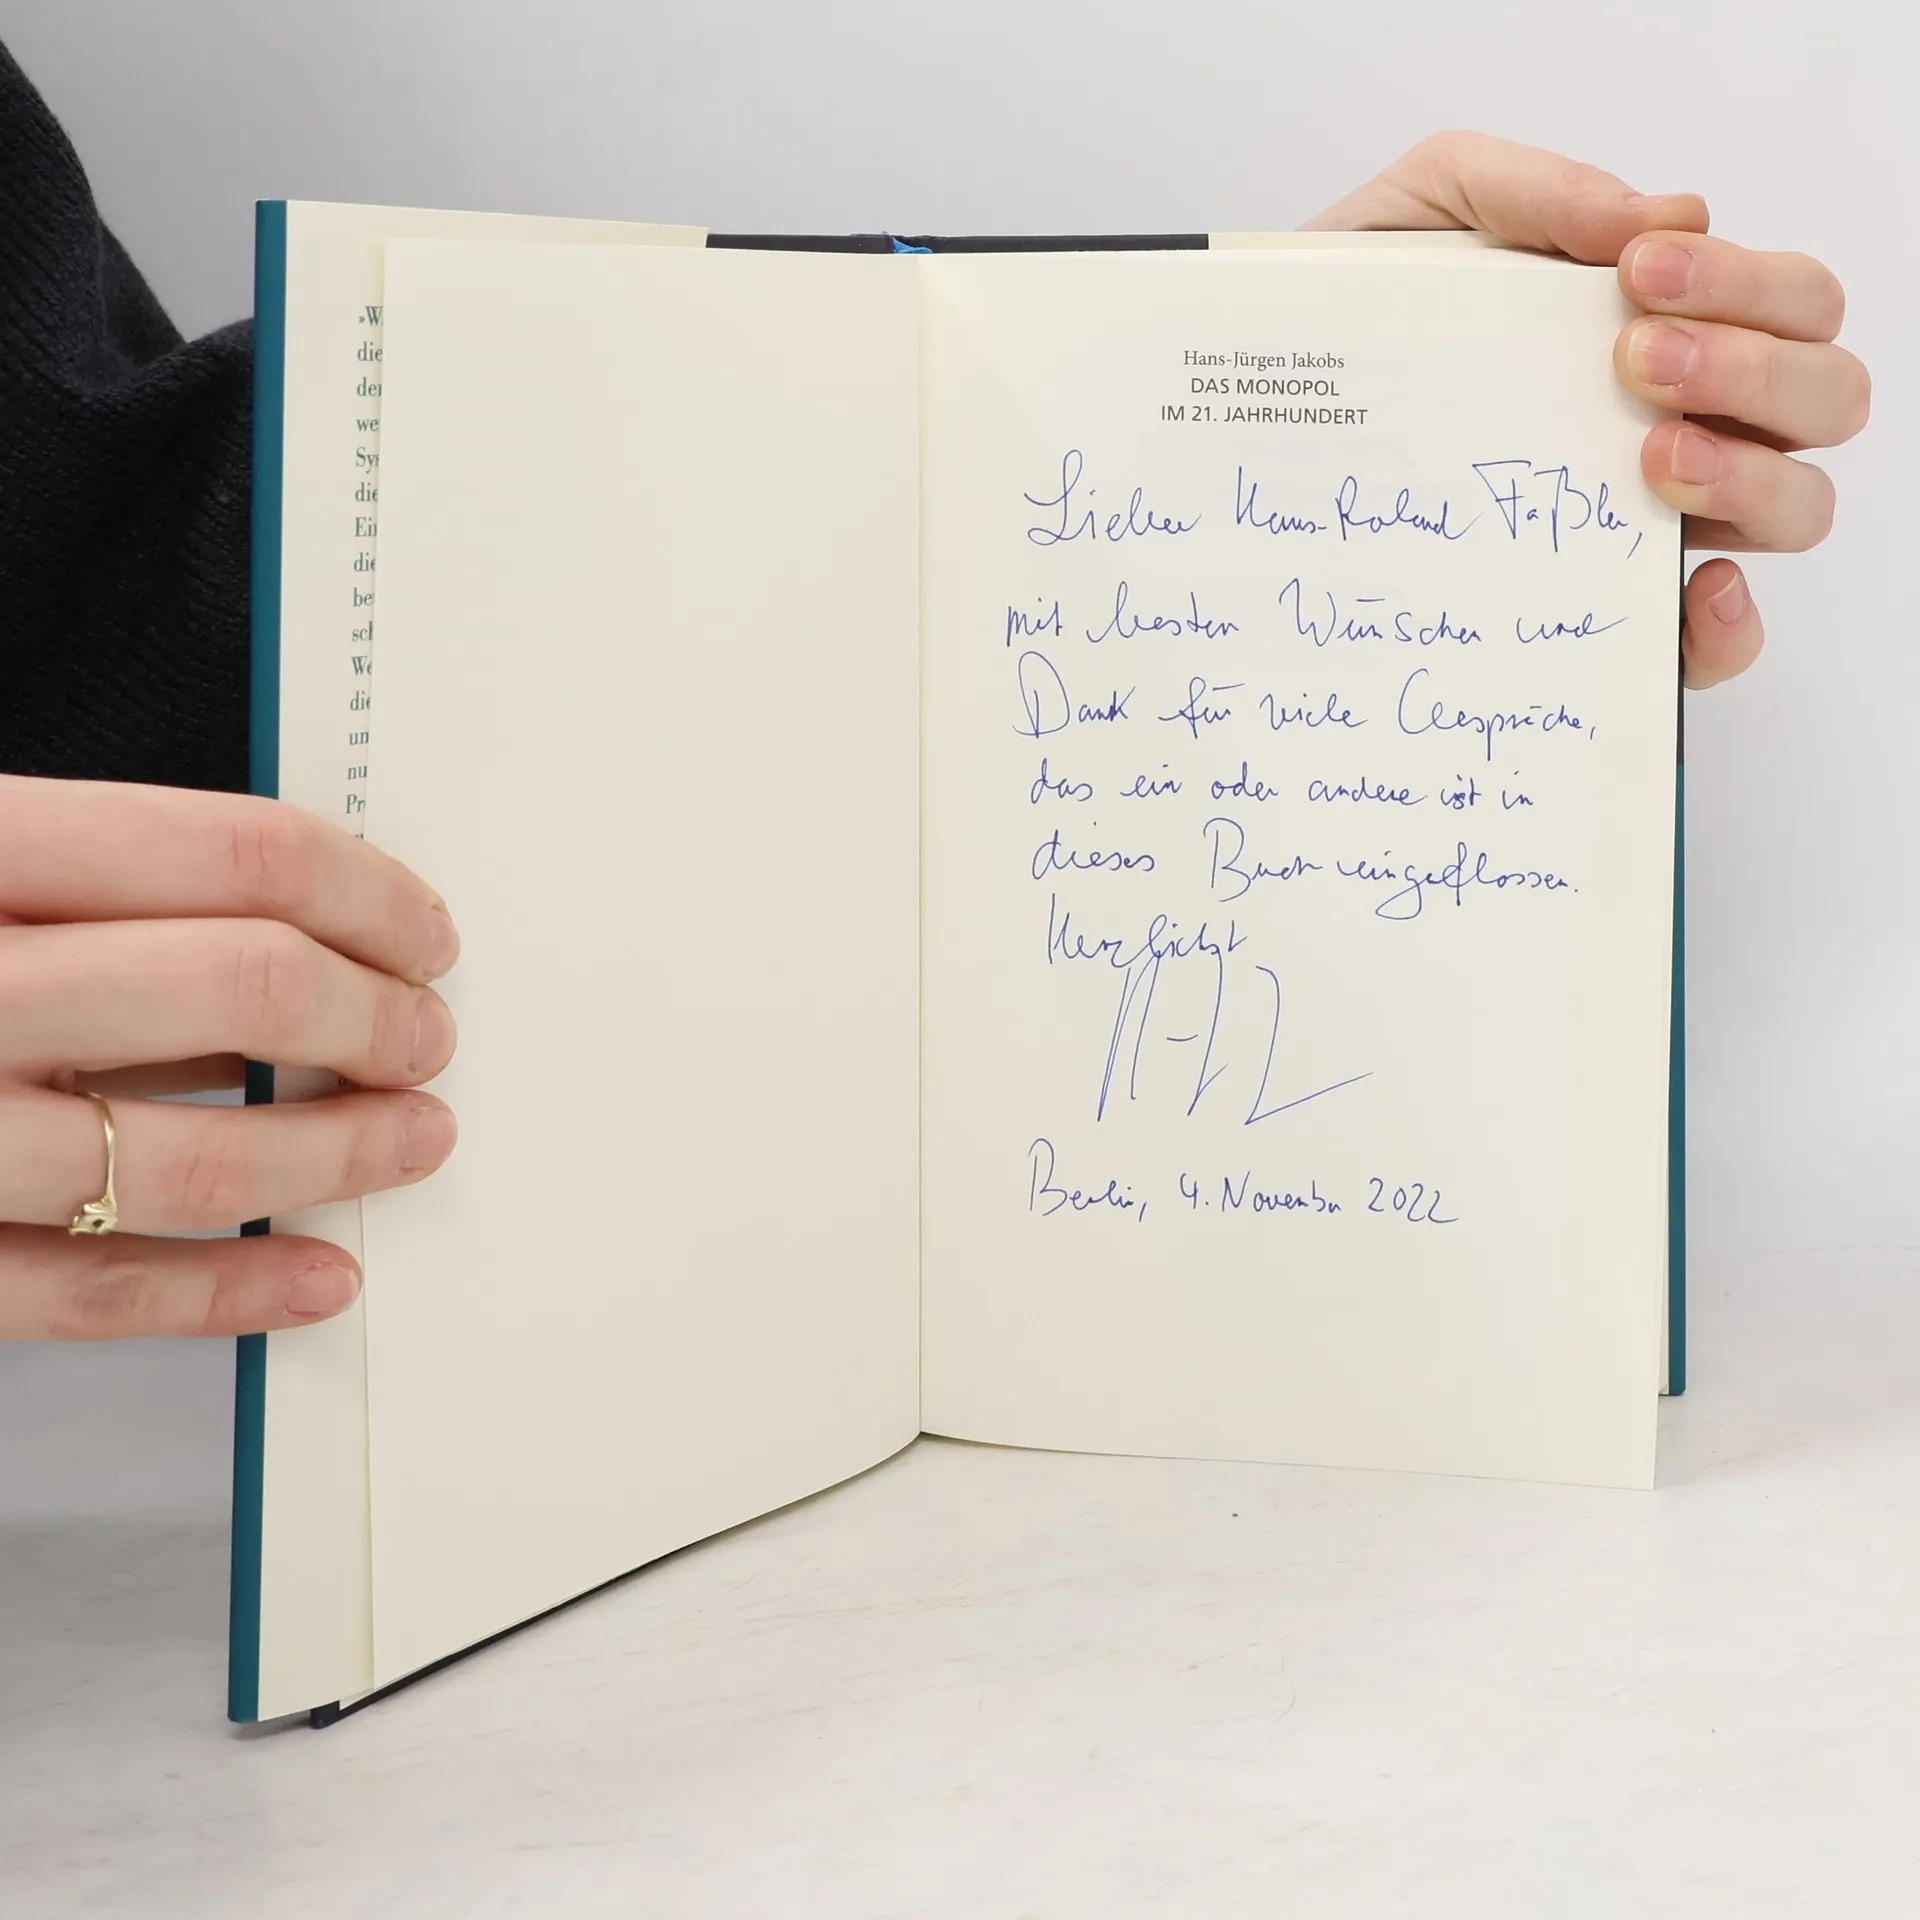 »W
die
der
we
Sys
die
Ein
die
be
sch
We
die
un
nu
Pr
Hans-Jürgen Jakobs
DAS MONOPOL
IM 21. JAHRHUNDERT
Lieber Hans-Roland Fäßler,
mit besten Wünschen und
Dank für viele Gespräche,
das ein oder andere ist in
dieses Buch eingeflossen.
Herzlichst
Berlin, 4. November 2022